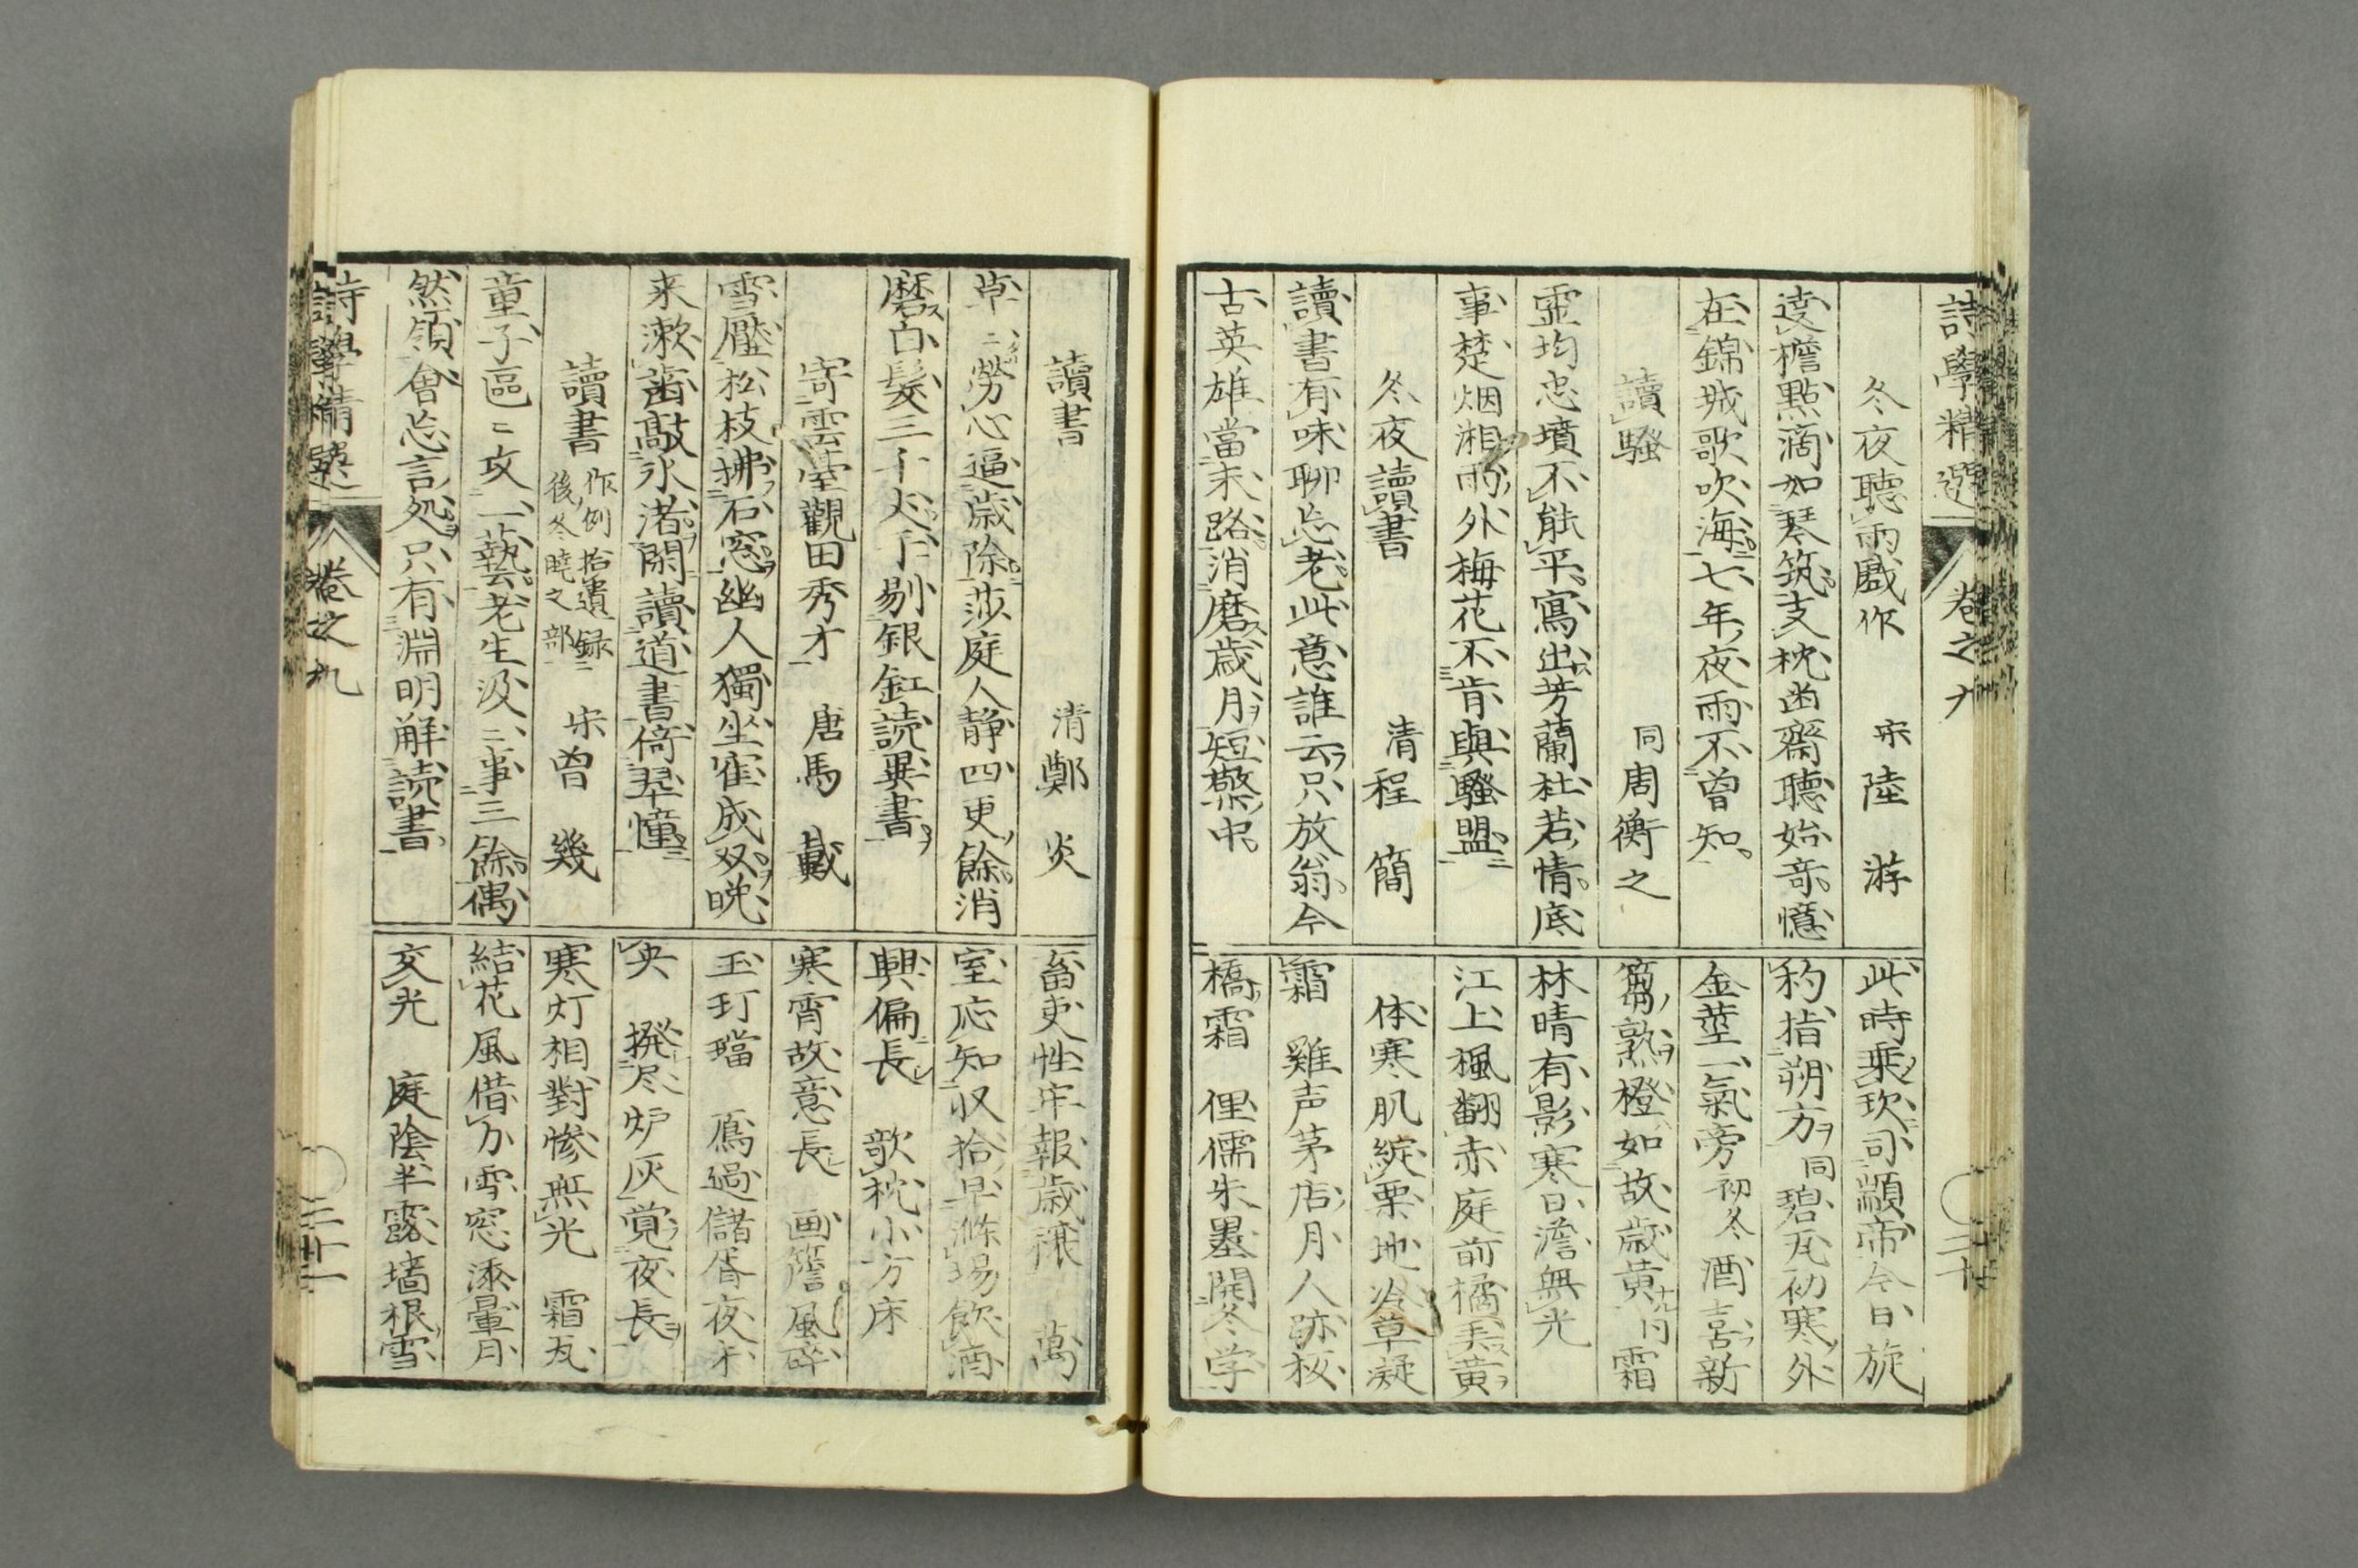 詩學精選 卷之九
冬夜聽雨戲作 宋陸 游
遶檐點滴如琴筑支枕幽齋聽始奇憶
在錦城歌吹海七年夜雨不曾知
讀騷 同周衡之
霊均忠墳不能平寫出芳蘭杜若情底
事楚烟湘雨外梅花不肯與騷盟
冬夜讀書 清程 簡
讀書有味聊忘老此意誰云只放翁今
古英雄當末路消磨歳月短檠中
此時乗坎司顓帝今日旋
杓指朔方 同 碧瓦初寒外
金莖一氣旁 初冬 酒喜新
篘熟橙如故歳黄 十九月 霜
林晴有影寒日澹無光
江上楓翻赤庭前橘弄黄
体寒肌綻粟地冷草凝
霜 雞声茅店月人跡板
橋霜 俚儒朱墨開冬学
二十
讀書 清鄭 炎
草〻勞心逼歳除莎庭人静四更餘消
磨白髪三千丈手剔銀缸読異書
寄雲臺觀田秀才 唐馬 戴
雪壓松枝拂石窓幽人獨坐隺成双晩
来漱齒敲氷渚閑讀道書倚翠幢
讀書 作例拾遺録後冬曉之部 宋曽 幾
童子區〻攻一藝老生汲〻事三餘偶
然領會忘言処只有淵明解読書
畜吏性牢報歳穣 萬
室応知収拾早滌場飲酒
興偏長 歌枕小方床
寒宵故意長 画簷風碎
玉玎璫 鴈過儲胥夜未
央 撥尽炉灰覚夜長
寒灯相對惨無光 霜瓦
結花風借力雪窓添暈月
交光 庭陰半露墻根雪
詩學精選 卷之九
二十一